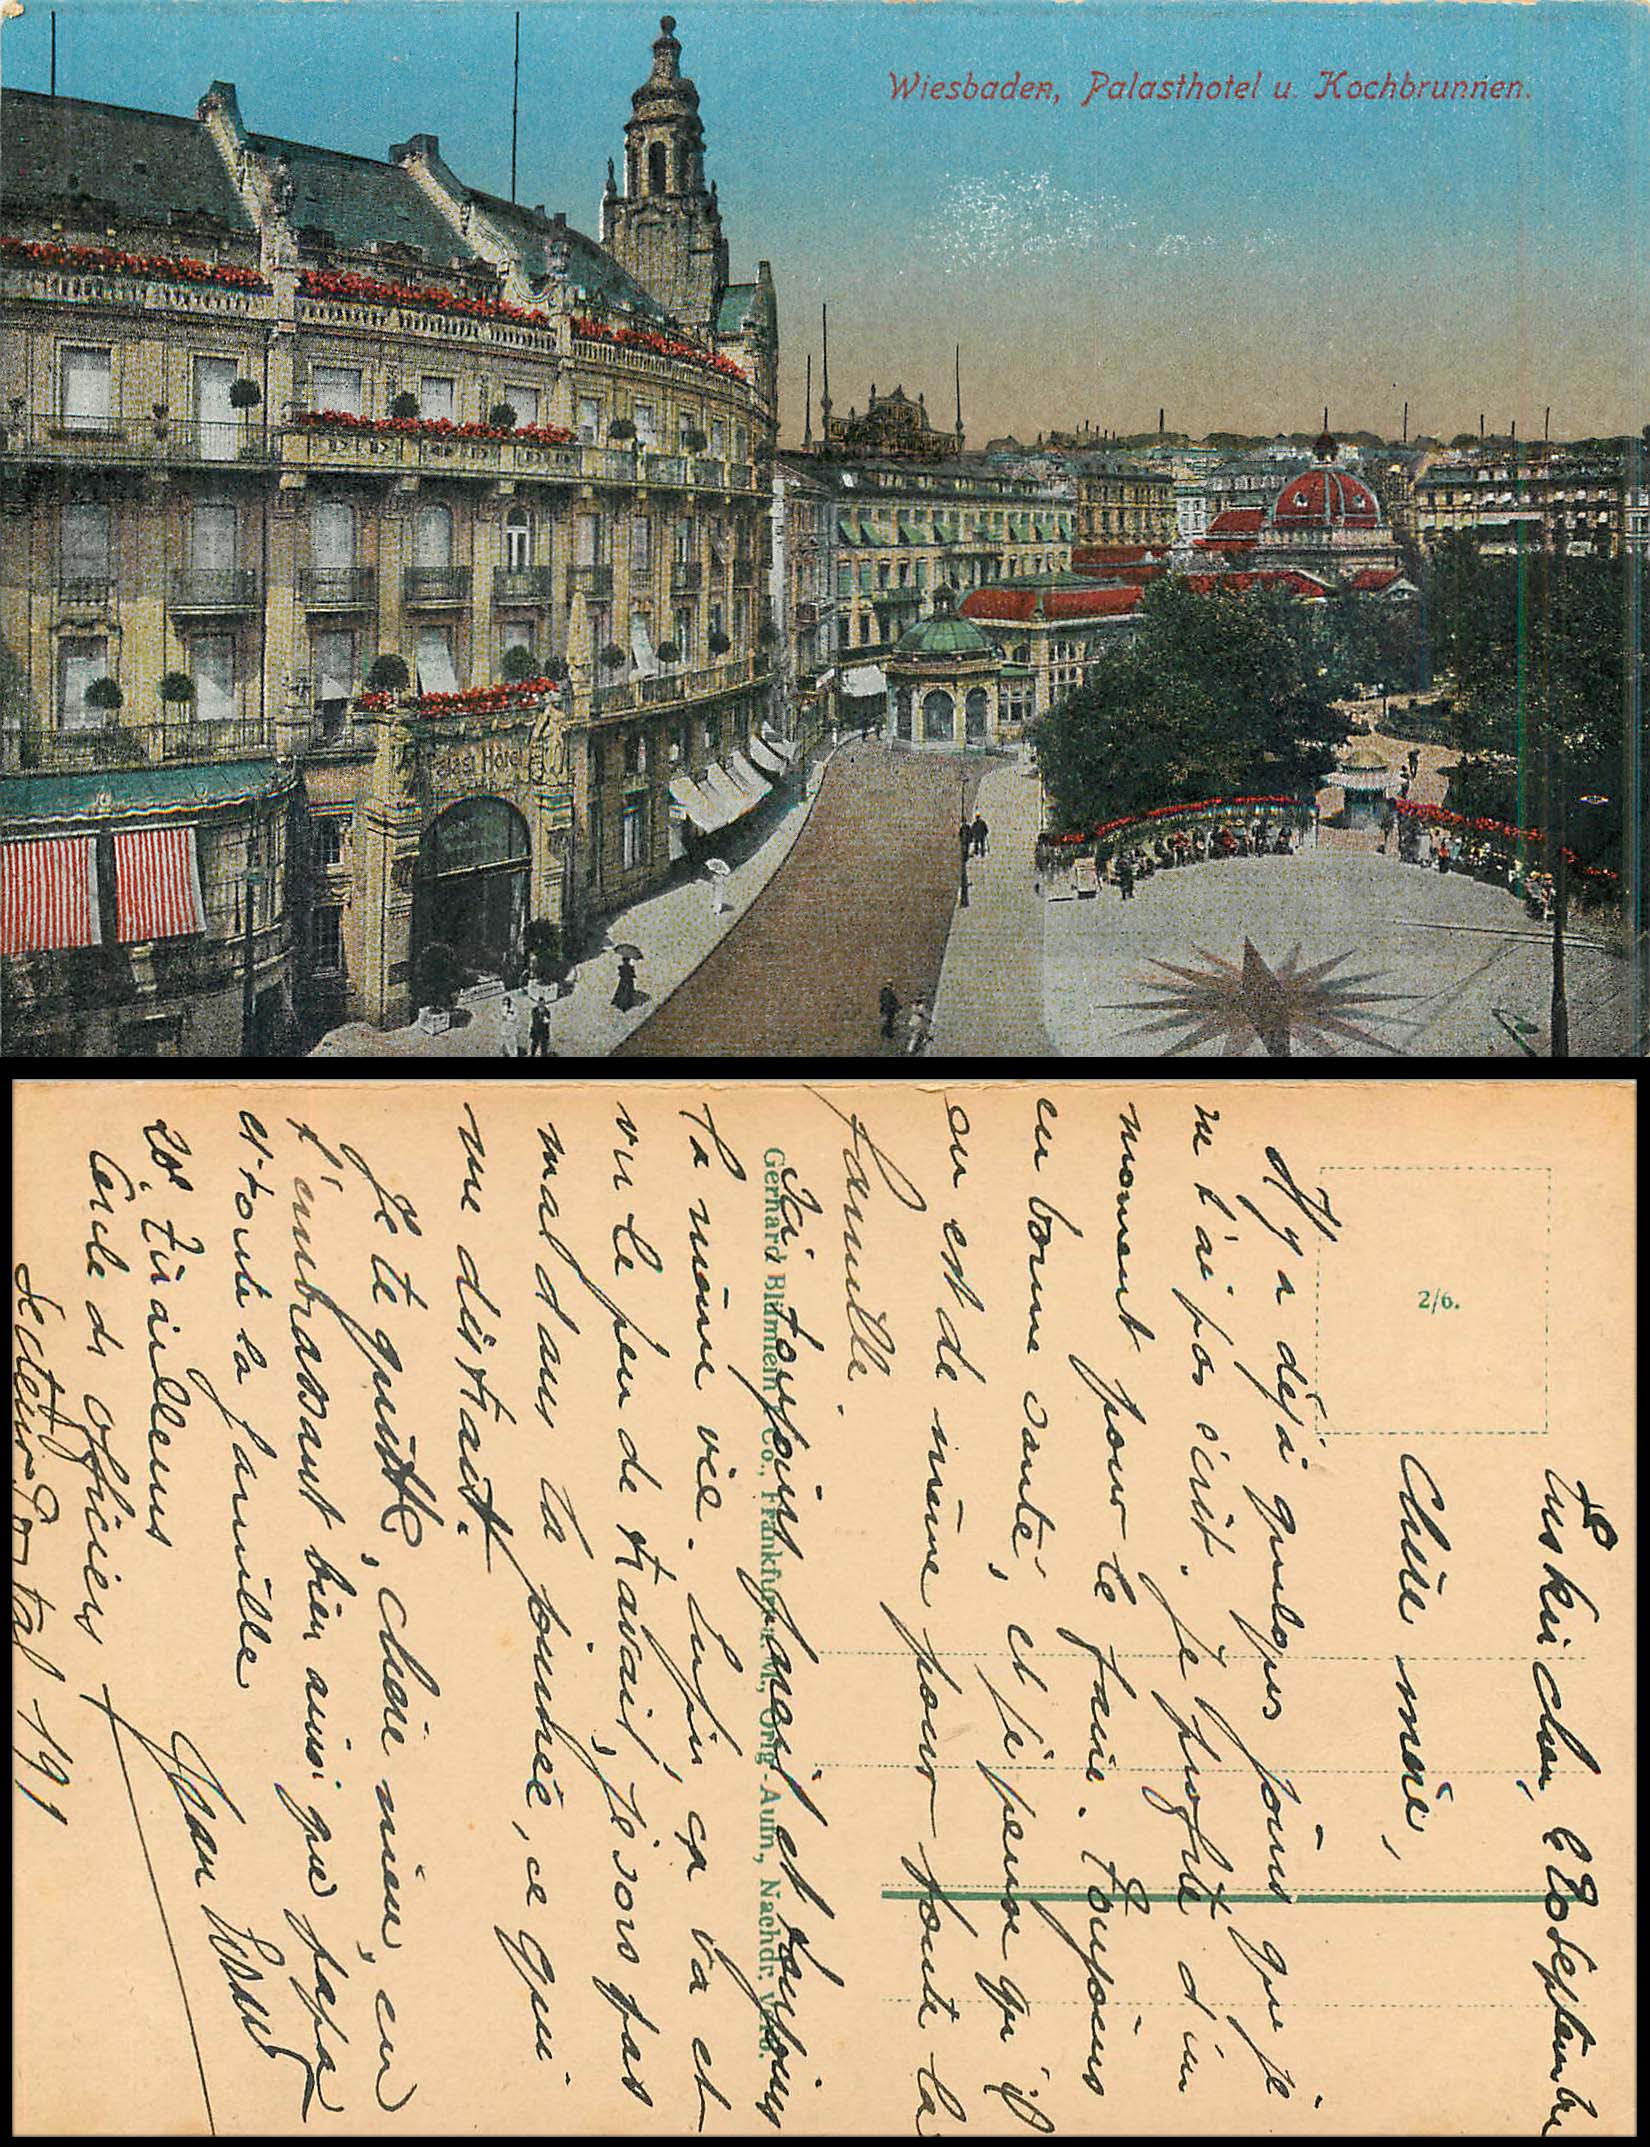 Wiesbaden, Palasthotel u. Kochbrunnen.
Palast Hotel
2/6.
Gerhard Blümlein & Co., Frankfurt a. M., Orig.-Aufn., Nachdr. verb.
Euskirchen, le 20 Septembre
Chère mère,
Il y a déjà quelques jours que je
ne t'ai pas écrit. Je profite d'un
moment pour le faire. Toujours
en bonne santé, et je pense qu'il
en est de même pour toute la
famille.
Ici toujours froid et toujours
la même vie. Enfin, ça va et
vu le peu de travail, je sors pas
mal dans la journée, ce qui
me distrait.
Je te quitte, chère mère, en
t'embrassant bien ainsi que papa
et toute la famille
Jean
20e Tirailleurs
Cercle des officiers
Secteur Postal 199